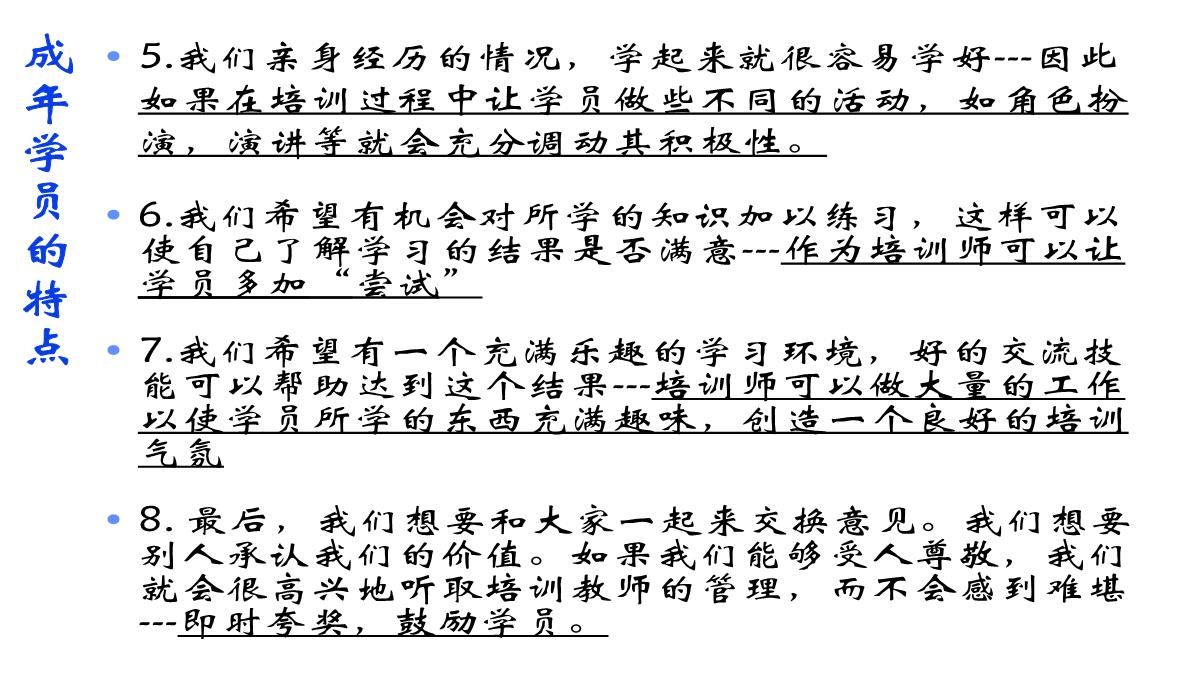 成年学员的特点
5.我们亲身经历的情况，学起来就很容易学好---因此
如果在培训过程中让学员做些不同的活动，如角色扮
演，演讲等就会充分调动其积极性。
6.我们希望有机会对所学的知识加以练习，这样可以
使自己了解学习的结果是否满意---作为培训师可以让
学员多加“尝试”
7.我们希望有一个充满乐趣的学习环境，好的交流技
能可以帮助达到这个结果---培训师可以做大量的工作
以使学员所学的东西充满趣味，创造一个良好的培训
气氛
8. 最后，我们想要和大家一起来交换意见。我们想要
别人承认我们的价值。如果我们能够受人尊敬，我们
就会很高兴地听取培训教师的管理，而不会感到难堪
---即时夸奖，鼓励学员。